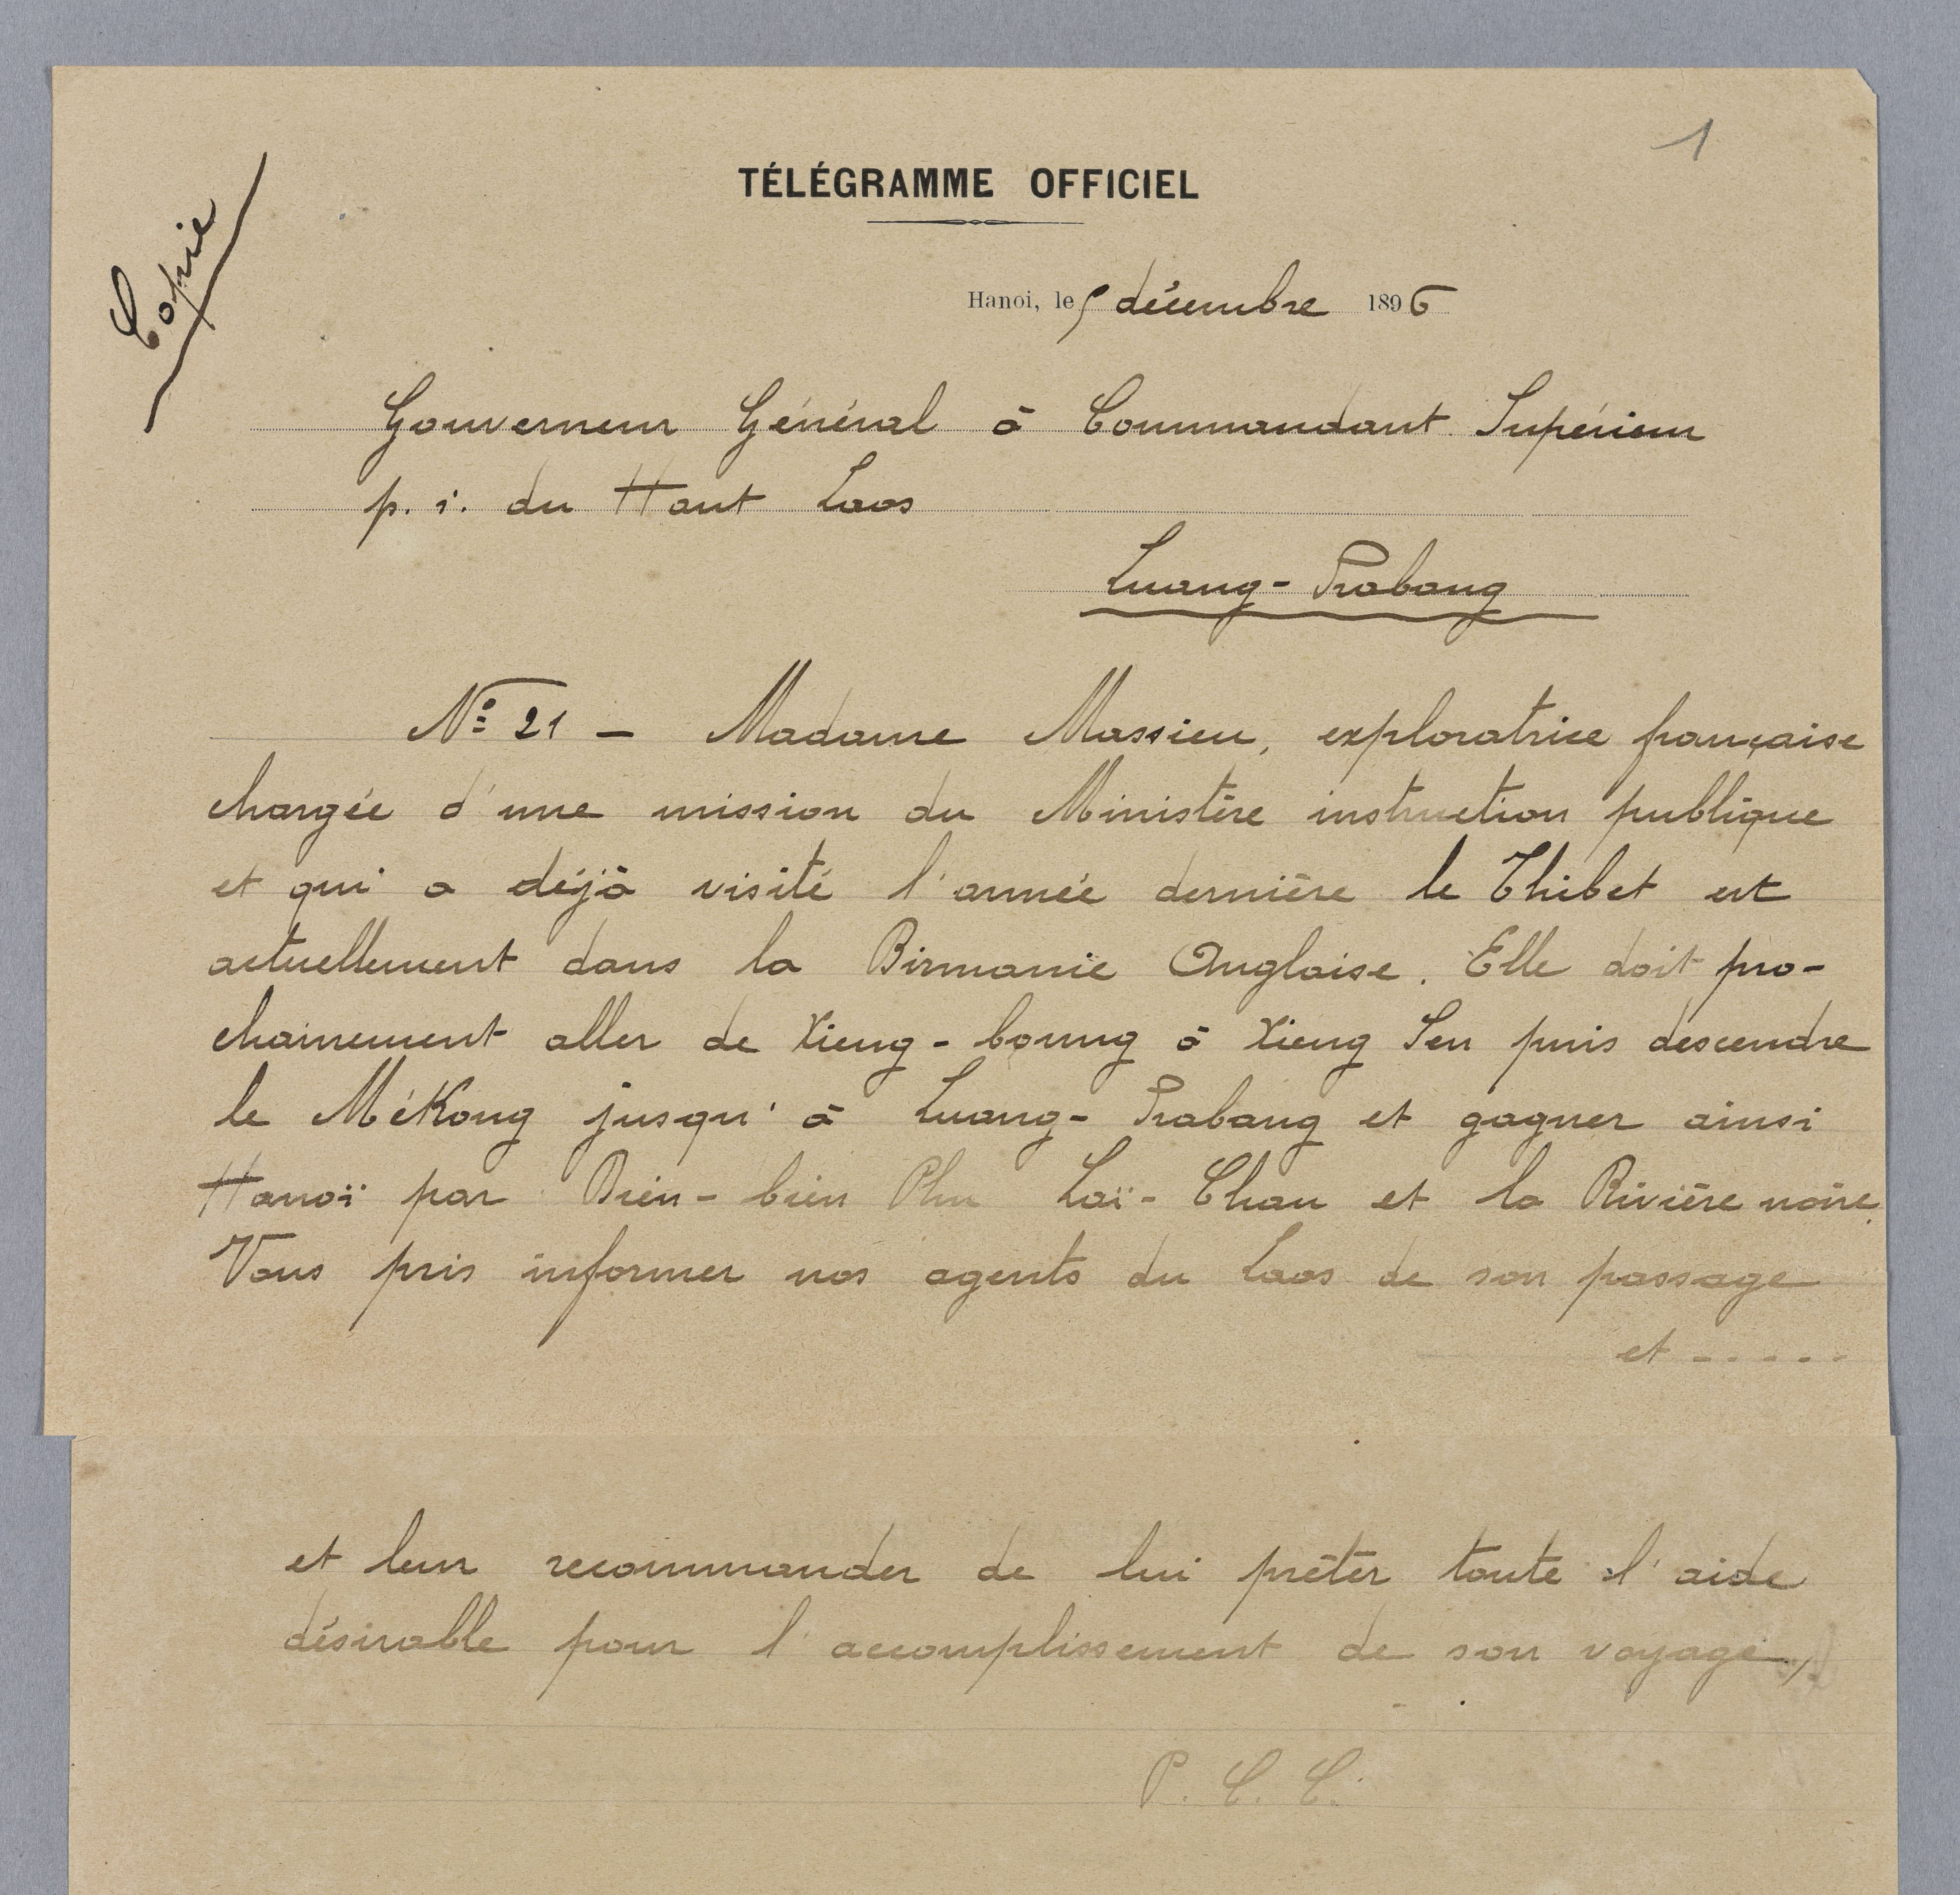 1
Copie
TÉLÉGRAMME OFFICIEL
Hanoi, le 5 décembre 1896
Gouverneur Général à Commandant Supérieur
p. i. du Haut Laos
Luang-Prabang
Nº 21 — Madame Massieu, exploratrice française
chargée d'une mission du Ministère instruction publique
et qui a déjà visité l'année dernière le Thibet est
actuellement dans la Birmanie Anglaise. Elle doit pro-
chainement aller de Xieng-boung à Xieng Sen puis descendre
le MéKong jusqu'à Luang-Prabang et gagner ainsi
Hanoï par Bien-bien Phu Laï-Chau et la Rivière noire.
Vous pris informer nos agents du Laos de son passage
et - - - - -
et leur recommander de lui prêter toute l'aide
désirable pour l'accomplissement de son voyage,
P. C. C.